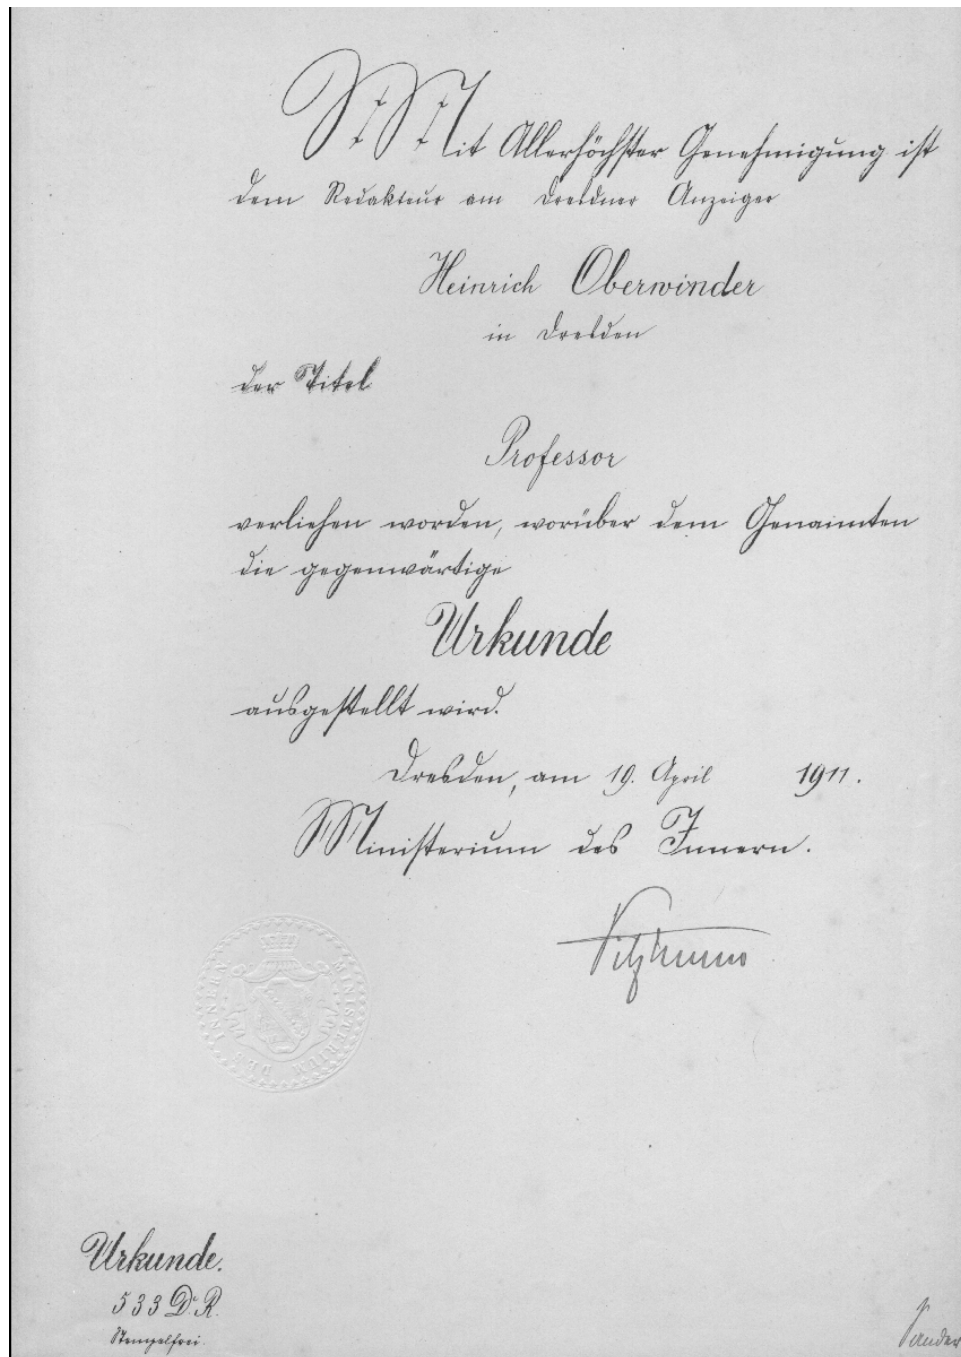 Mit Allerhöchster Genehmigung ist
dem Redakteur am Dresdner Anzeiger
Heinrich Oberwinder
in Dresden
der Titel
Professor
verliehen worden, worüber dem Genannten
die gegenwärtige
Urkunde
ausgestellt wird.
Dresden, am 19. April 1911.
Ministerium des Innern.
Vitzthum
MINISTERIUM DES INNERN
Urkunde.
533 D. R.
Stempelfrei.